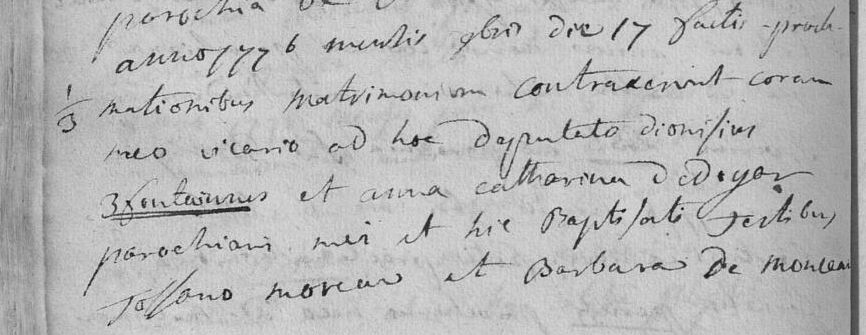 parochia de
anno 1776 mensis 9bris die 17 factis proch-
1/3 mationibus matrimonium contraxerunt coram
meo vicario ad hoc deputato dionisius
3fontainnes et anna catharina dedoyar
parochiani mei et hic Baptisati testibus
Tossano moreau et Barbara De monceau